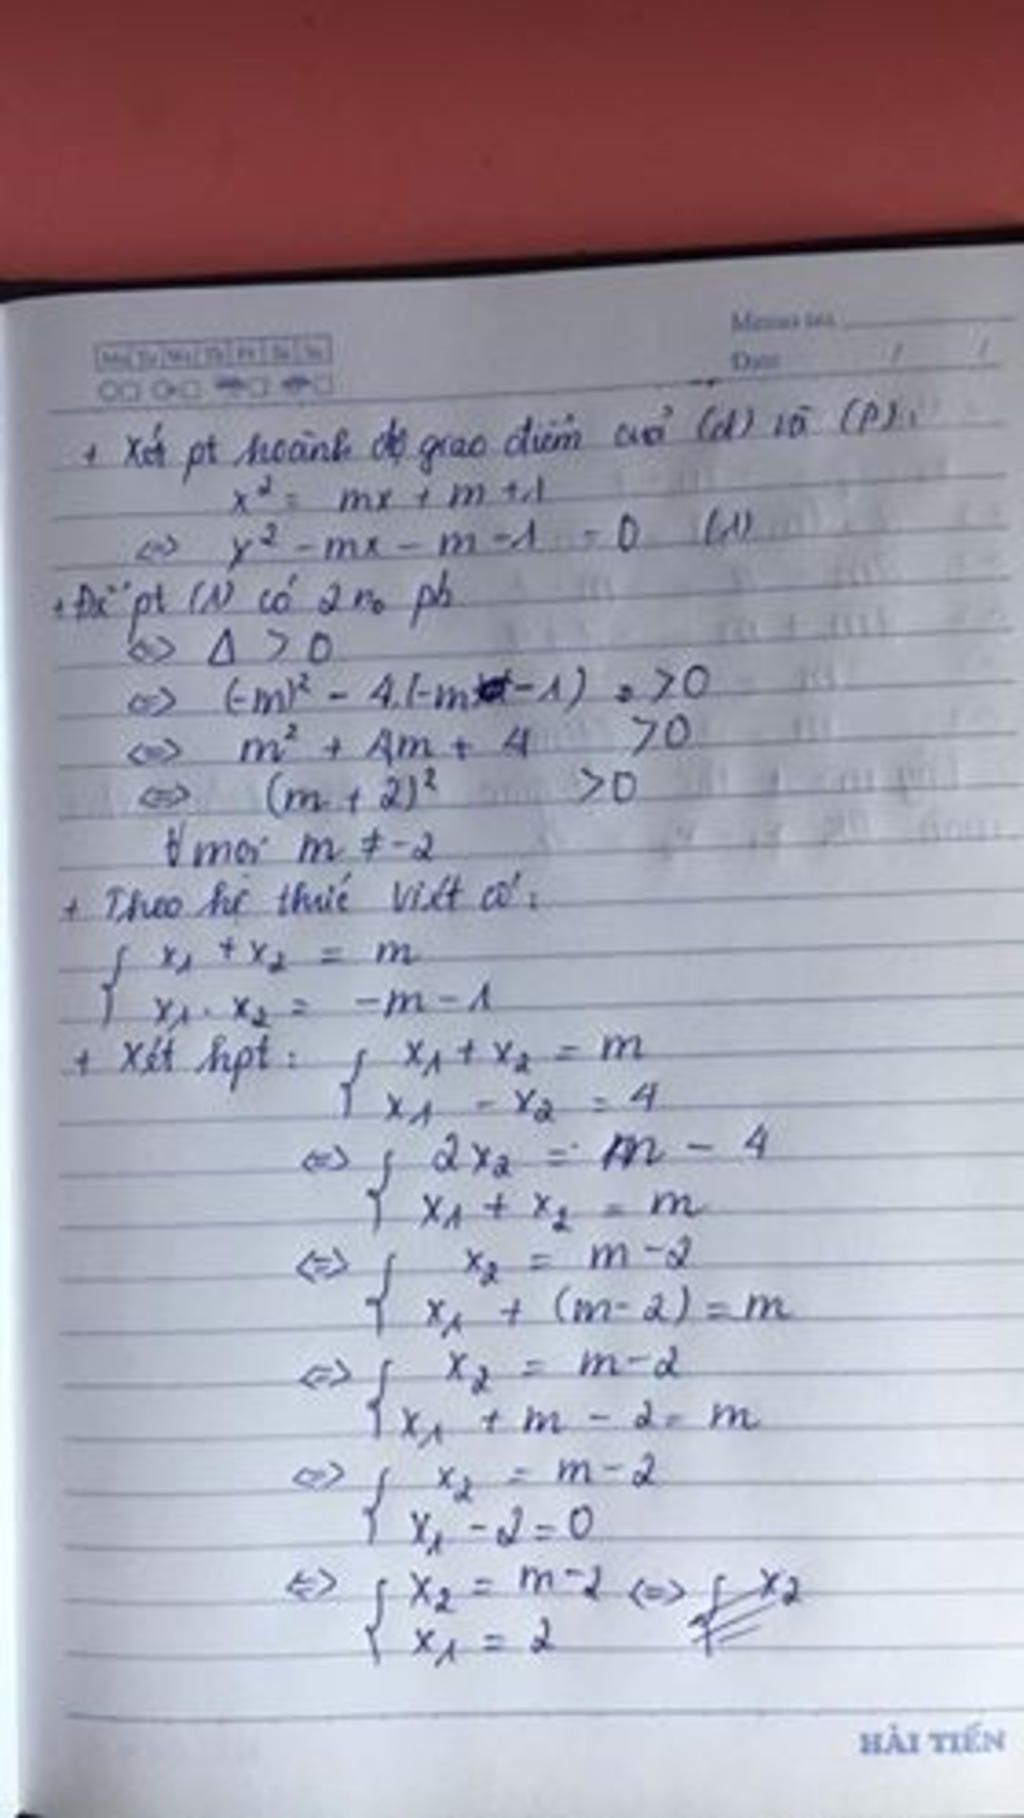 Memo No.
Mo Tu We Th Fr Sa Su
Date / /
+ Xét pt hoành độ giao điểm của (d) và (P):
x² = mx + m + 1
<=> x² - mx - m - 1 = 0 (1)
+ Để pt (1) có 2 no pb
<=> Δ > 0
<=> (-m)² - 4.(-m - 1) > 0
<=> m² + 4m + 4 > 0
<=> (m + 2)² > 0
∀ mọi m ≠ -2
+ Theo hệ thức Viét có:
{ x₁ + x₂ = m
x₁ . x₂ = -m - 1
+ Xét hpt: { x₁ + x₂ = m
x₁ - x₂ = 4
<=> { 2x₂ = m - 4
x₁ + x₂ = m
<=> { x₂ = m - 2
x₁ + (m - 2) = m
<=> { x₂ = m - 2
x₁ + m - 2 = m
<=> { x₂ = m - 2
x₁ - 2 = 0
<=> { x₂ = m - 2 <=> { x₂
x₁ = 2
HẢI TIẾN